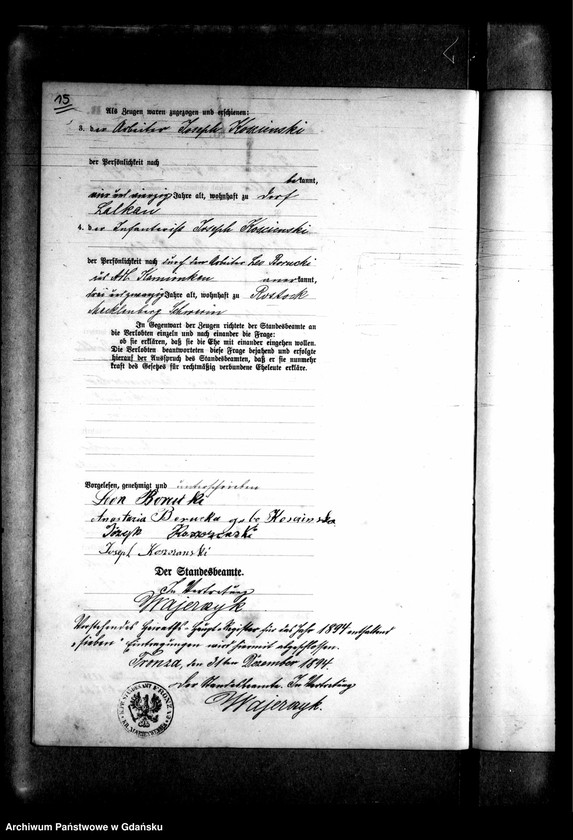 15
Als Zeugen waren zugezogen und erschienen:
3. der Arbeiter Joseph Kosciemski
der Persönlichkeit nach
bekannt,
vier und vierzig Jahre alt, wohnhaft zu Dorf
Lalkau
4. der Infanterist Joseph Kosciemski
der Persönlichkeit nach durch den Arbeiter Leo Borucki
aus Kamionken anerkannt,
drei und zwanzig Jahre alt, wohnhaft zu Rostock
Mecklenburg Schwerin
In Gegenwart der Zeugen richtete der Standesbeamte an
die Verlobten einzeln und nach einander die Frage:
ob sie erklären, daß sie die Ehe mit einander eingehen wollen.
Die Verlobten beantworteten diese Frage bejahend und erfolgte
hierauf der Ausspruch des Standesbeamten, daß er sie nunmehr
kraft des Gesetzes für rechtmäßig verbundene Eheleute erkläre.
Vorgelesen, genehmigt und unterschrieben
Leon Borucki
Anastazia Borucka geb. Kosciemska
Józeph
Joseph
Der Standesbeamte.
In Vertretung
Wajerzyk
Vorstehendes Heiraths-Haupt-Register für das Jahr 1894 enthaltend
„sieben“ Eintragungen wird hiermit abgeschlossen.
Fronza, den 31ten Dezember 1894.
Der Standesbeamte. In Vertretung
Wajerzyk.
Archiwum Państwowe w Gdańsku